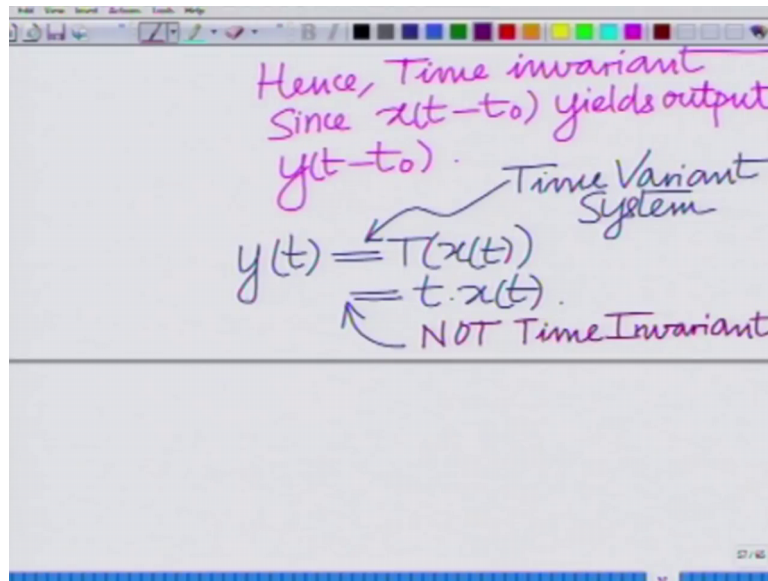 Edit View Insert Actions Tools Help
Hence, Time invariant
Since x(t-t₀) yields output
y(t-t₀).
Time Variant
System
y(t) = T(x(t))
= t.x(t).
NOT Time Invariant